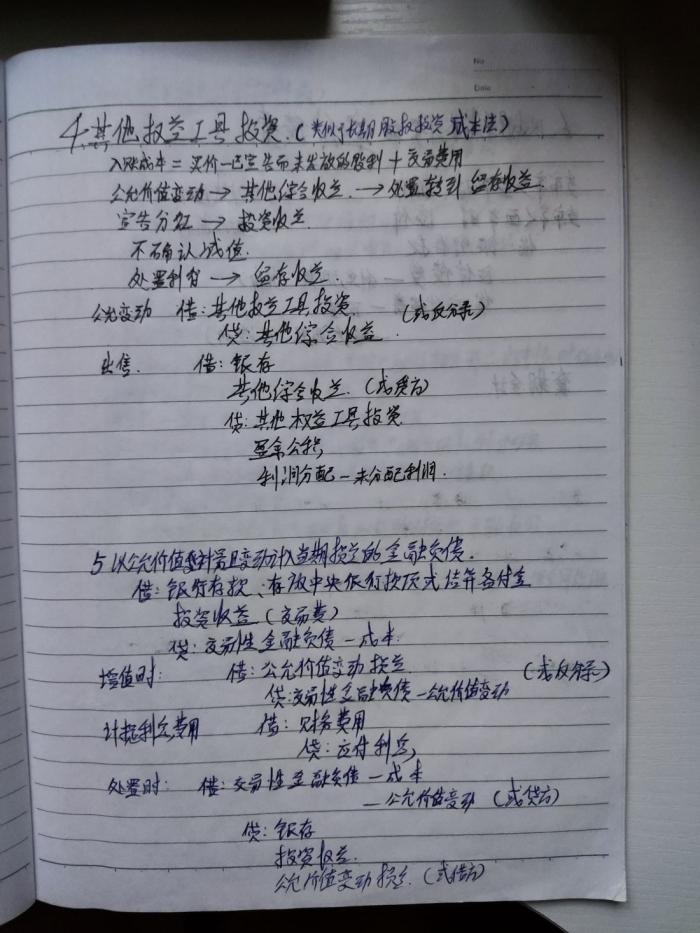 No
Date
4.其他权益工具投资.(类似于长期股权投资 成本法)
入账成本 = 买价-已宣告而未发放的股利 + 交易费用
公允价值变动 → 其他综合收益. → 处置转到 留存收益.
宣告分红 → 投资收益.
不确认减值.
处置利得 → 留存收益.
公允变动 借:其他权益工具投资. (或反分录)
贷:其他综合收益.
出售. 借:银存
其他综合收益.(或贷方)
贷:其他权益工具投资
盈余公积,
利润分配-未分配利润.
5 以公允价值计量且变动计入当期损益的金融负债.
借:银行存款、存放中央银行款项或结算备付金
投资收益(交易费)
贷:交易性金融负债-成本.
增值时: 借:公允价值变动损益 (或反分录)
贷:交易性金融负债-公允价值变动
计提利息费用 借:财务费用
贷:应付利息,
处置时: 借:交易性金融负债-成本
-公允价值变动 (或贷方)
贷:银存
投资收益.
公允价值变动损益.(或借方)